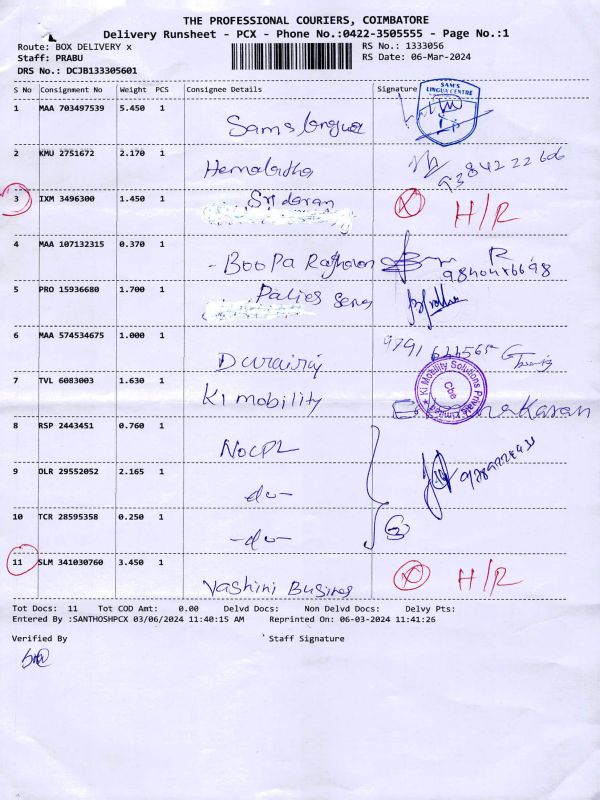 THE PROFESSIONAL COURIERS, COIMBATORE
Delivery Runsheet - PCX - Phone No.:0422-3505555 - Page No.:1
Route: BOX DELIVERY x RS No.: 1333056
Staff: PRABU RS Date: 06-Mar-2024
DRS No.: DCJB133305601
S No Consignment No Weight PCS Consignee Details Signature
SAM'S LINGUA CENTRE
1 MAA 703497539 5.450 1 Sams lingua
2 KMU 2751672 2.170 1 Hemalatha
3 IXM 3496300 1.450 1 Sridaran H/R
4 MAA 107132315 0.370 1 - Boopa Raghavan
5 PRO 15936680 1.700 1
6 MAA 574534675 1.000 1 Durairaj
7 TVL 6083003 1.630 1 KI mobility
Ki Mobility Solutions Private Limited Cbe
8 RSP 2443451 0.760 1 NOCPL
9 DLR 29552052 2.165 1 -do-
10 TCR 28595358 0.250 1 -do-
11 SLM 341030760 3.450 1 Vashini Busines H/R
Tot Docs: 11 Tot COD Amt: 0.00 Delvd Docs: Non Delvd Docs: Delvy Pts:
Entered By :SANTHOSHPCX 03/06/2024 11:40:15 AM Reprinted On: 06-03-2024 11:41:26
Verified By Staff Signature